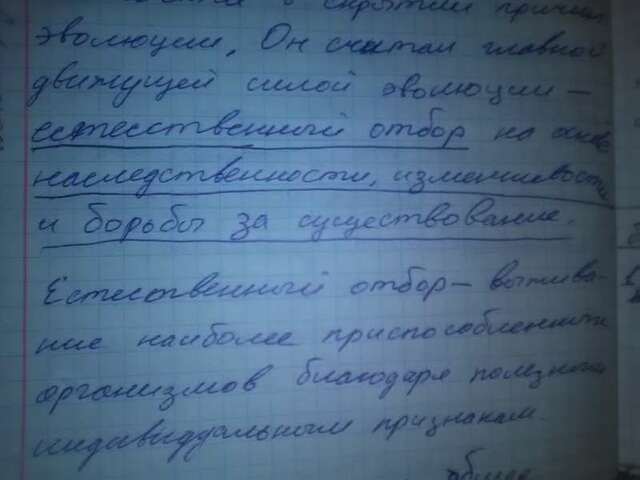 скрытии причин
эволюции. Он считал главной
движущей силой эволюции —
естественный отбор на основе
наследственности, изменчивости
и борьбы за существование.
Естественный отбор — выжива-
ние наиболее приспособленных
организмов благодаря полезным
индивидуальным признакам.
общее